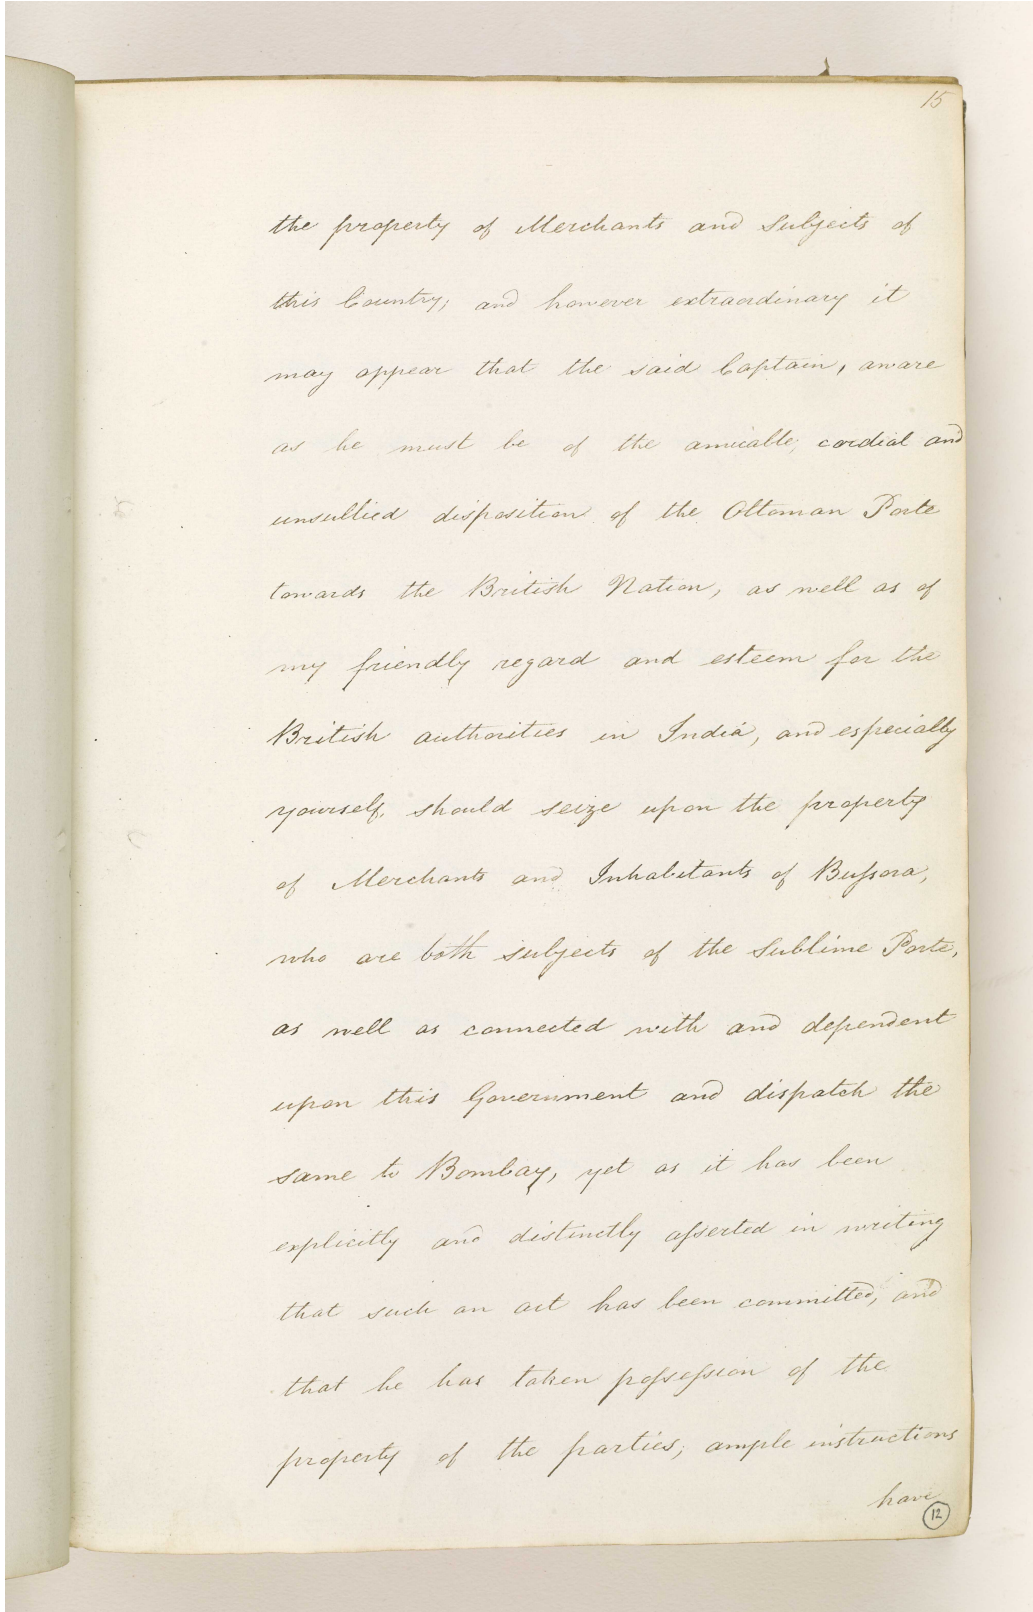 15
the property of Merchants and Subjects of
this Country; and however extraordinary it
may appear that the said Captain, aware
as he must be of the amicable, cordial and
unsullied disposition of the Ottoman Porte
towards the British Nation, as well as of
my friendly regard and esteem for the
British authorities in India, and especially
yourself, should seize upon the property
of Merchants and Inhabitants of Bussora,
who are both subjects of the Sublime Porte,
as well as connected with and dependent
upon this Government and dispatch the
same to Bombay, yet as it has been
explicitly and distinctly asserted in writing
that such an act has been committed, and
that he has taken possession of the
property of the parties; ample instructions
have
12